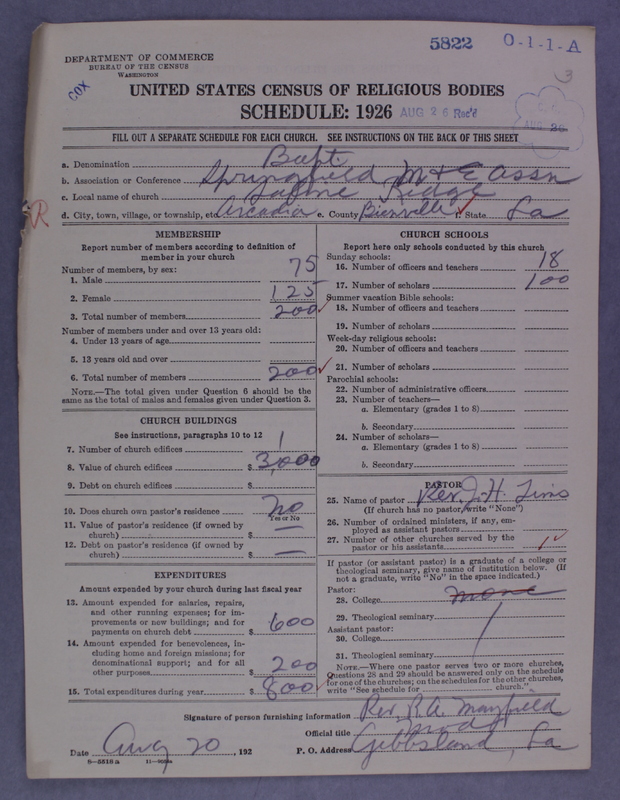 5822 O-1-1-A
3
DEPARTMENT OF COMMERCE
BUREAU OF THE CENSUS
WASHINGTON
COX
UNITED STATES CENSUS OF RELIGIOUS BODIES
SCHEDULE: 1926 AUG 26 Rec'd
FILL OUT A SEPARATE SCHEDULE FOR EACH CHURCH. SEE INSTRUCTIONS ON THE BACK OF THIS SHEET
a. Denomination Bapt.
b. Association or Conference Springfield M + E assn
c. Local name of church Ridge
d. City, town, village, or township, etc Arcadia e. County Bienville f. State La
R
MEMBERSHIP
Report number of members according to definition of
member in your church
Number of members, by sex:
1. Male 75
2. Female 125
3. Total number of members 200
Number of members under and over 13 years old:
4. Under 13 years of age
5. 13 years old and over
6. Total number of members 200
NOTE.—The total given under Question 6 should be the
same as the total of males and females given under Question 3.
CHURCH BUILDINGS
See instructions, paragraphs 10 to 12
7. Number of church edifices 1
8. Value of church edifices $ 3,000
9. Debt on church edifices $
10. Does church own pastor's residence no
Yes or No
11. Value of pastor's residence (if owned by
church) $ —
12. Debt on pastor's residence (if owned by
church) $ —
EXPENDITURES
Amount expended by your church during last fiscal year
13. Amount expended for salaries, repairs,
and other running expenses; for im-
provements or new buildings; and for
payments on church debt $ 600
14. Amount expended for benevolences, in-
cluding home and foreign missions; for
denominational support; and for all
other purposes $ 200
15. Total expenditures during year $ 800
CHURCH SCHOOLS
Report here only schools conducted by this church
Sunday schools:
16. Number of officers and teachers 18
17. Number of scholars 100
Summer vacation Bible schools:
18. Number of officers and teachers
19. Number of scholars
Week-day religious schools:
20. Number of officers and teachers
21. Number of scholars
Parochial schools:
22. Number of administrative officers
23. Number of teachers—
a. Elementary (grades 1 to 8)
b. Secondary
24. Number of scholars—
a. Elementary (grades 1 to 8)
b. Secondary
PASTOR
25. Name of pastor Rev. J. H. Sims
(If church has no pastor, write "None")
26. Number of ordained ministers, if any, em-
ployed as assistant pastors
27. Number of other churches served by the
pastor or his assistants 1
If pastor (or assistant pastor) is a graduate of a college or
theological seminary, give name of institution below. (If
not a graduate, write "No" in the space indicated.)
Pastor:
28. College none
29. Theological seminary
Assistant pastor:
30. College
31. Theological seminary
NOTE.—Where one pastor serves two or more churches,
Questions 28 and 29 should be answered only on the schedule
for one of the churches; on the schedules for the other churches,
write "See schedule for church."
Signature of person furnishing information Rev. R. A. Mayfield
Official title Mod
Date Aug 20, 192 P. O. Address Gibbsland, La
8—5518a